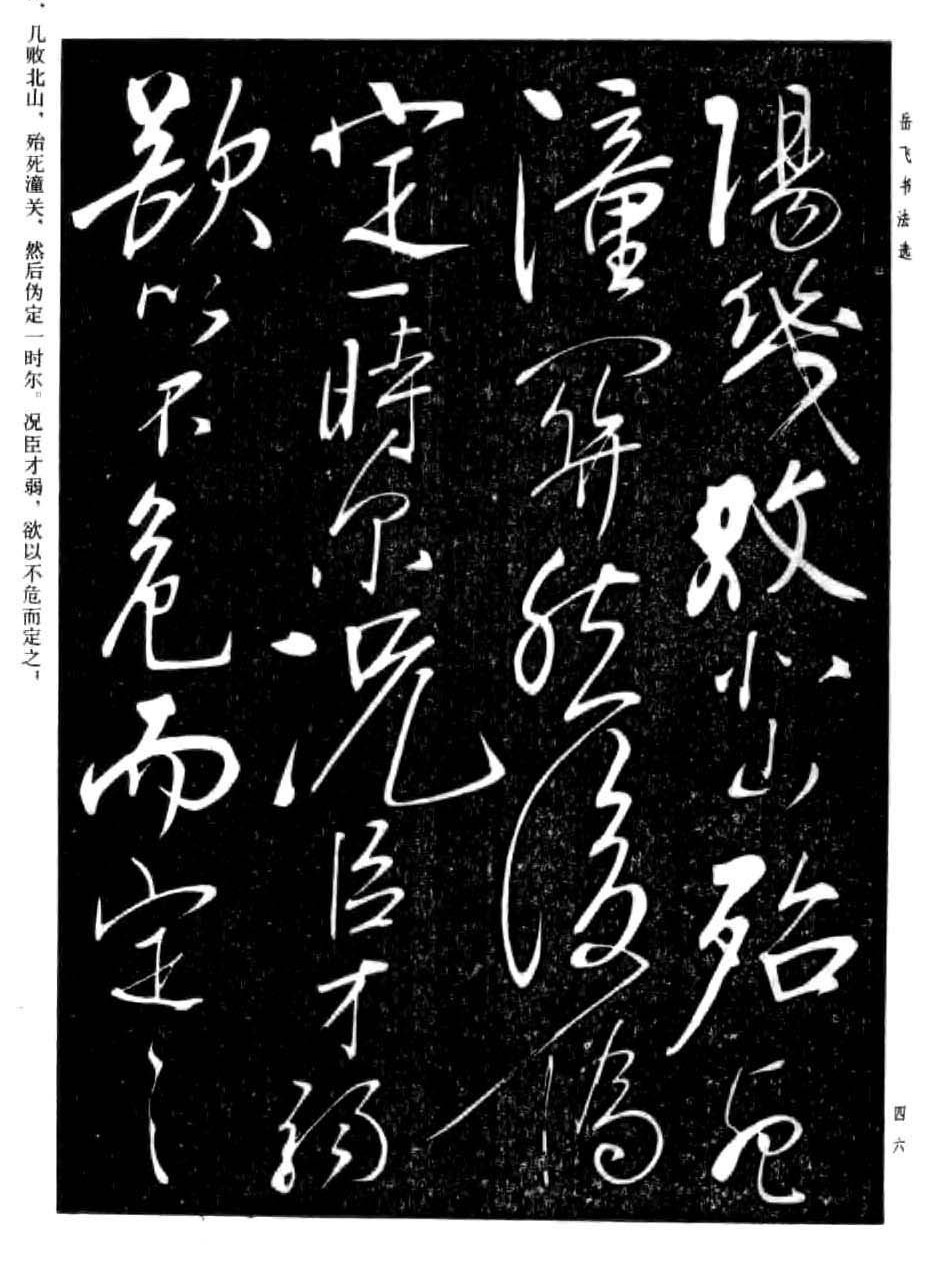 岳飞书法选
陽幾敗北山殆死
潼關然後偽
定一時尔况臣才弱
欲以不危而定之
，几败北山，殆死潼关，然后伪定一时尔。况臣才弱，欲以不危而定之，
四六